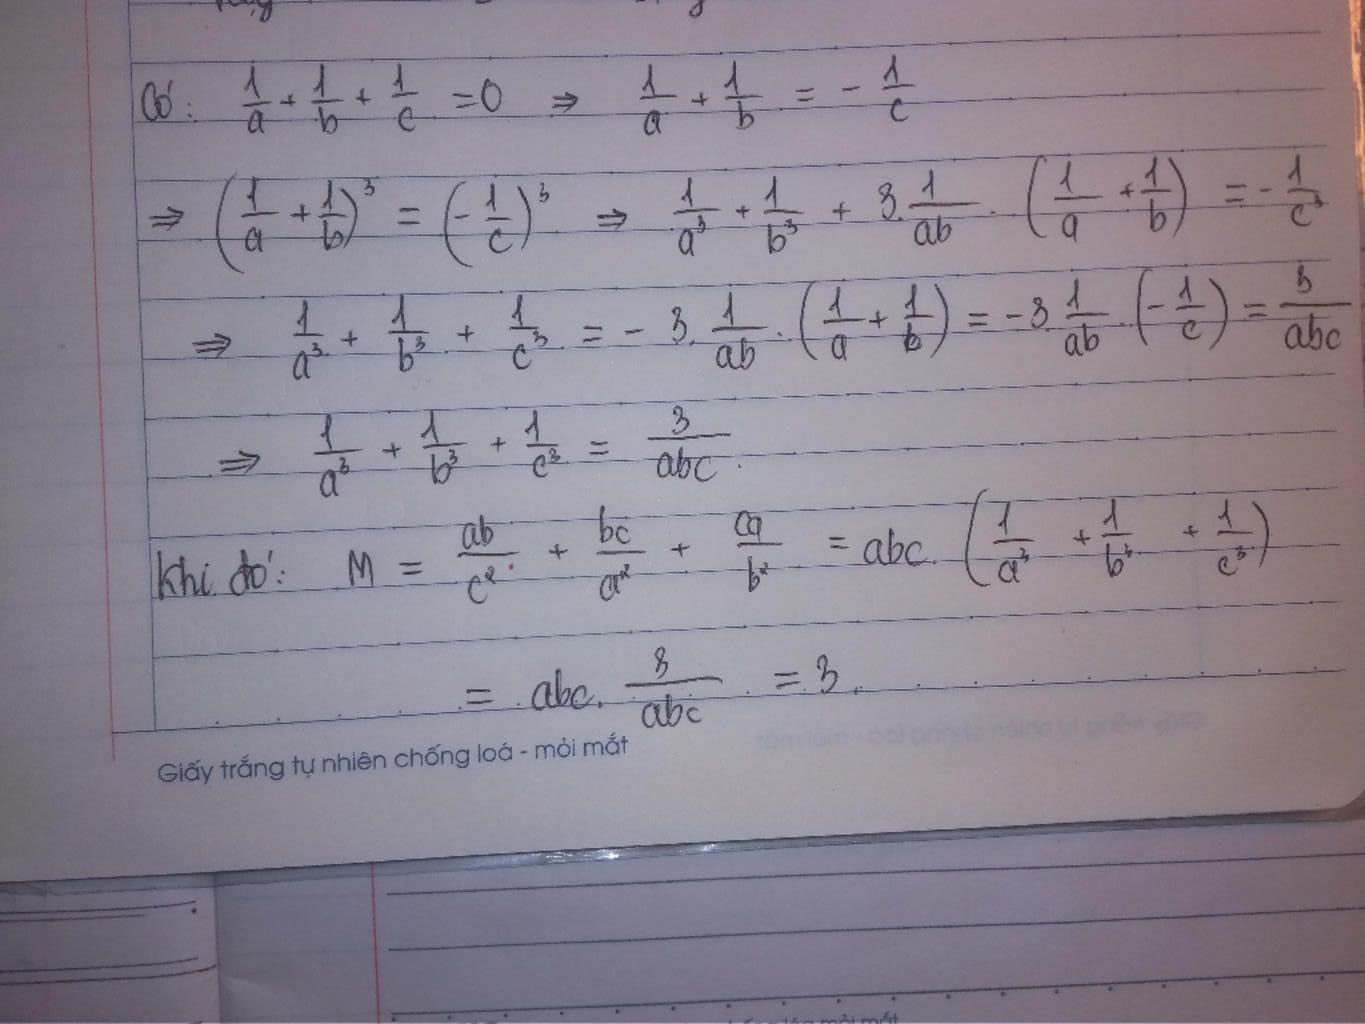 Có: 1/a + 1/b + 1/c = 0 ⇒ 1/a + 1/b = - 1/c
⇒ (1/a + 1/b)³ = (- 1/c)³ ⇒ 1/a³ + 1/b³ + 3. 1/ab . (1/a + 1/b) = - 1/c³
⇒ 1/a³ + 1/b³ + 1/c³ = - 3. 1/ab . (1/a + 1/b) = -3 1/ab . (- 1/c) = 3/abc
⇒ 1/a³ + 1/b³ + 1/c³ = 3/abc.
Khi đó: M = ab/c² + bc/a² + ca/b² = abc. (1/a³ + 1/b³ + 1/c³)
= abc. 3/abc = 3.
Giấy trắng tự nhiên chống loá - mỏi mắt